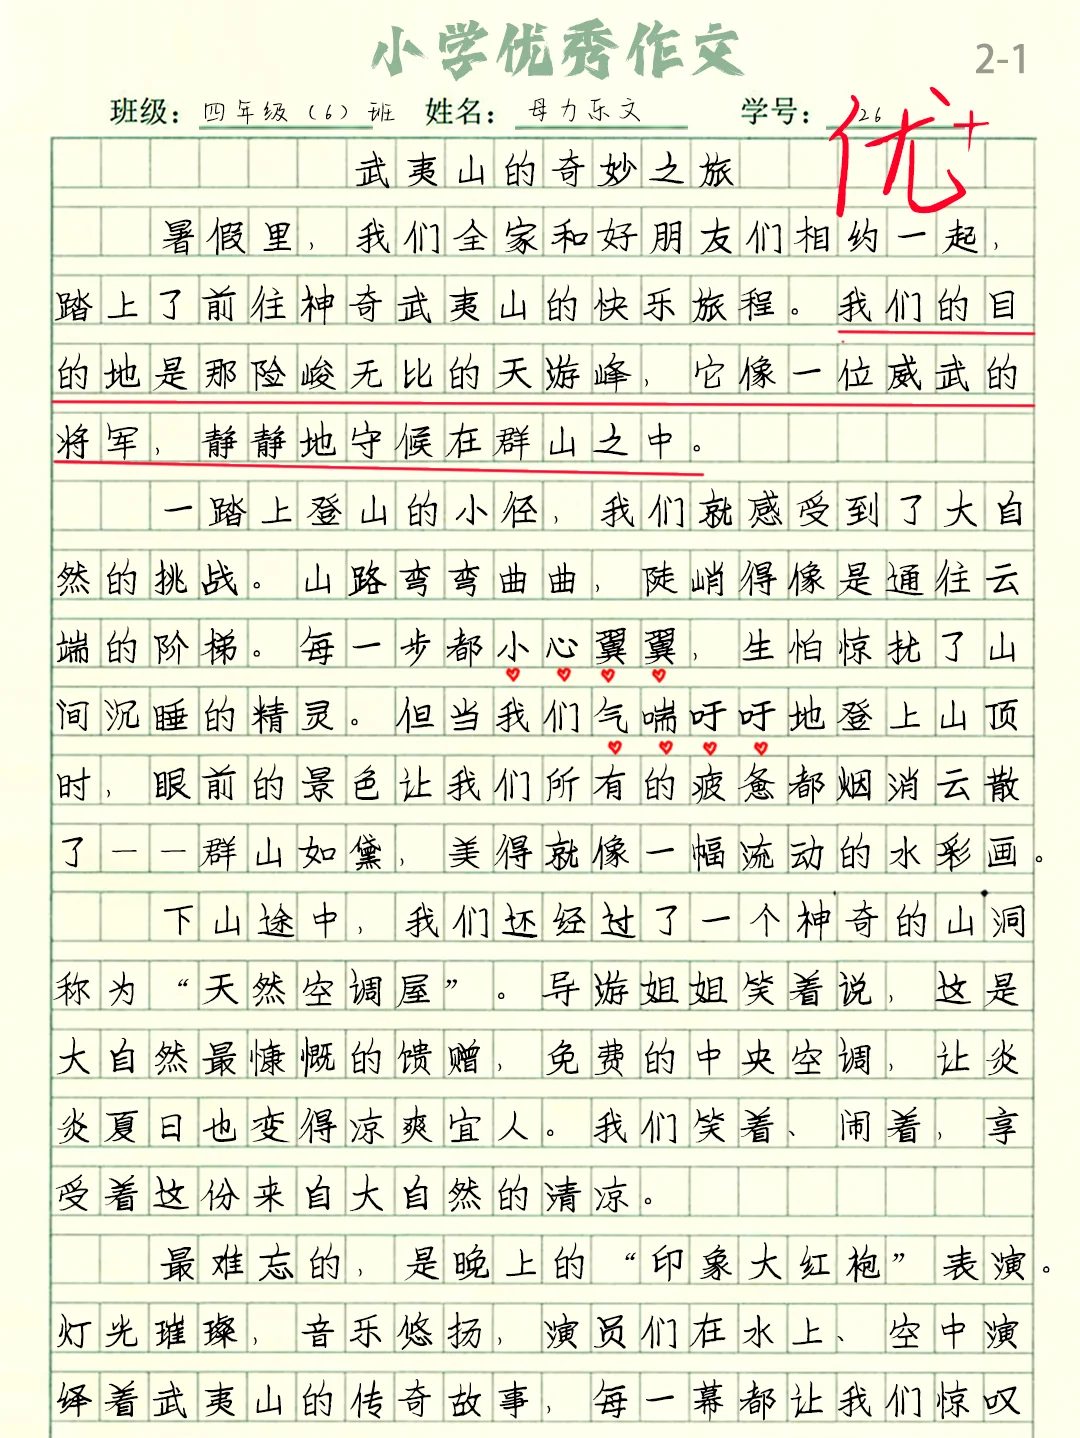 小学优秀作文
2-1
班级：四年级（6）班 姓名：母力乐文 学号：26
优+
武夷山的奇妙之旅
暑假里，我们全家和好朋友们相约一起，
踏上了前往神奇武夷山的快乐旅程。我们的目
的地是那险峻无比的天游峰，它像一位威武的
将军，静静地守候在群山之中。
一踏上登山的小径，我们就感受到了大自
然的挑战。山路弯弯曲曲，陡峭得像是通往云
端的阶梯。每一步都小心翼翼，生怕惊扰了山
间沉睡的精灵。但当我们气喘吁吁地登上山顶
时，眼前的景色让我们所有的疲惫都烟消云散
了——群山如黛，美得就像一幅流动的水彩画。
下山途中，我们还经过了一个神奇的山洞
称为“天然空调屋”。导游姐姐笑着说，这是
大自然最慷慨的馈赠，免费的中央空调，让炎
炎夏日也变得凉爽宜人。我们笑着、闹着，享
受着这份来自大自然的清凉。
最难忘的，是晚上的“印象大红袍”表演。
灯光璀璨，音乐悠扬，演员们在水上、空中演
绎着武夷山的传奇故事，每一幕都让我们惊叹